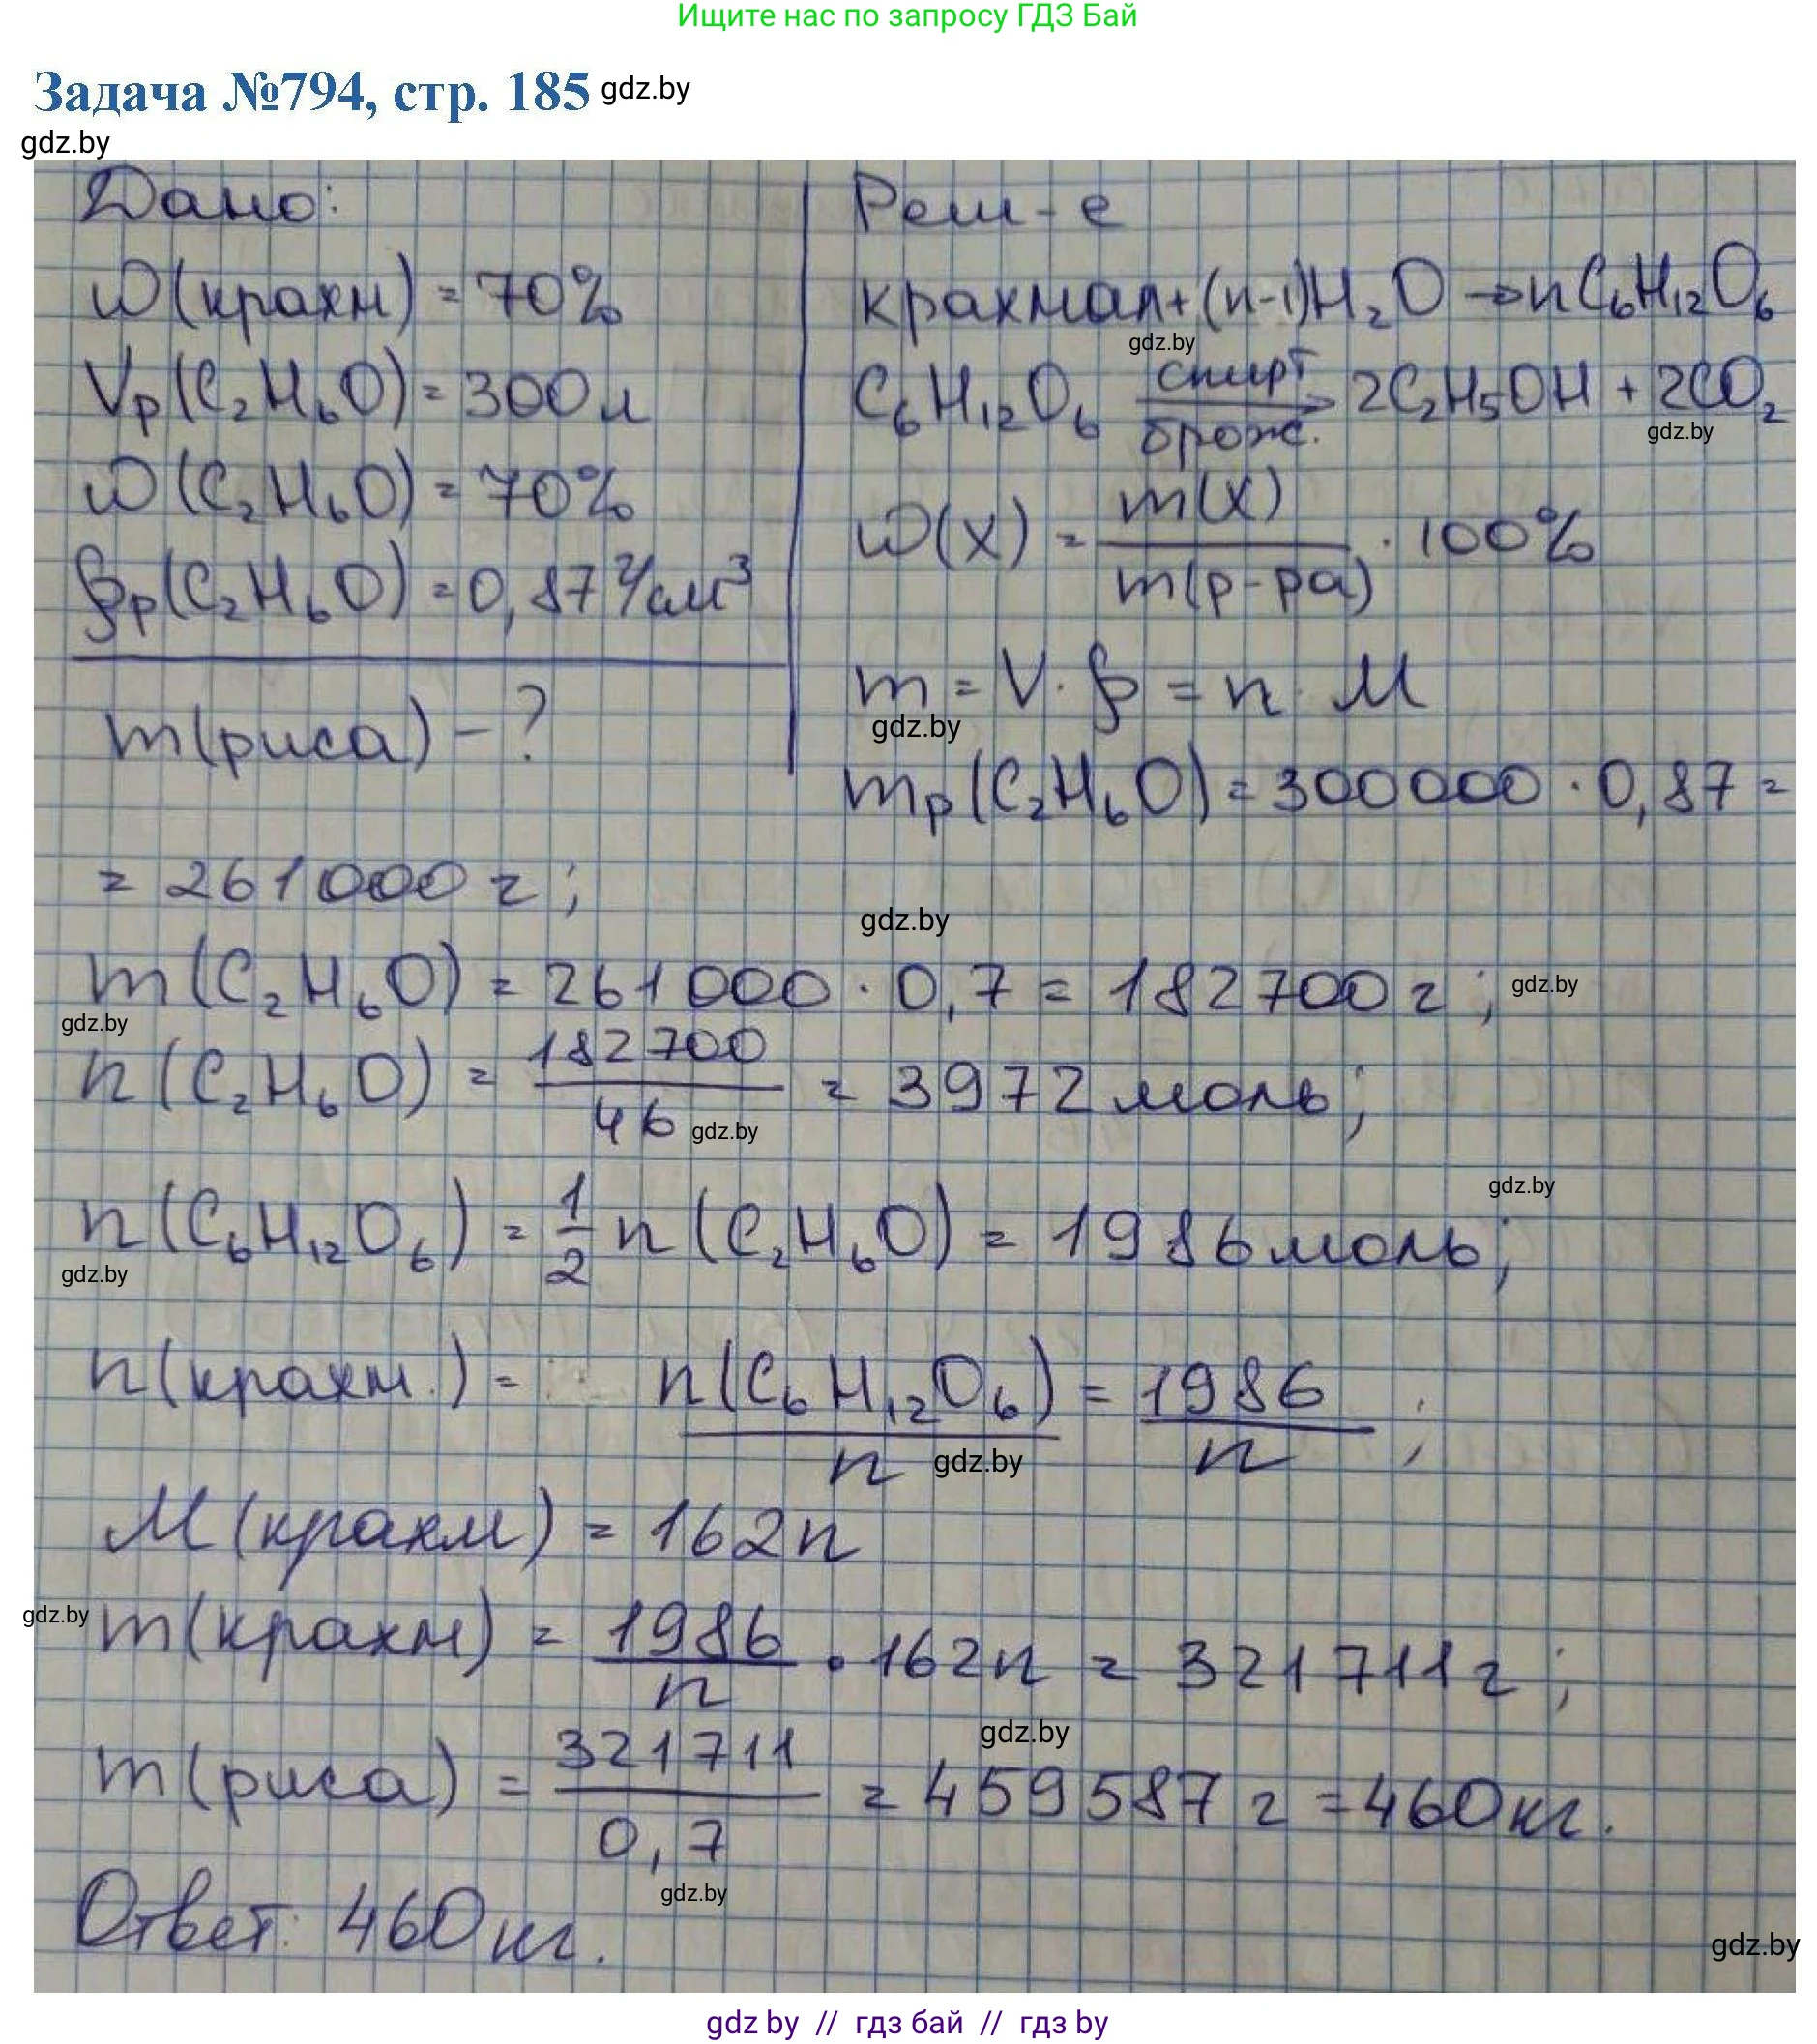 Ищите нас по запросу ГДЗ Бай
Задача №794, стр. 185 gdz.by
gdz.by
Дано:
ω(крахм) = 70%
Vр(C₂H₆O) = 300 л
ω(C₂H₆O) = 70%
ρр(C₂H₆O) = 0,87 г/см³
m(риса) - ?
Реш-е
крахмал + (n-1)H₂O → nC₆H₁₂O₆
gdz.by
C₆H₁₂O₆ спирт. брож. → 2C₂H₅OH + 2CO₂
gdz.by
ω(X) = m(X) / m(р-ра) · 100%
m = V · ρ = n · M
gdz.by
mр(C₂H₆O) = 300000 · 0,87 =
= 261000 г;
gdz.by
m(C₂H₆O) = 261000 · 0,7 = 182700 г; gdz.by
gdz.by
n(C₂H₆O) = 182700 / 46 = 3972 моль;
gdz.by
gdz.by
n(C₆H₁₂O₆) = 1/2 n(C₂H₆O) = 1986 моль;
gdz.by
n(крахм.) = n(C₆H₁₂O₆) / n = 1986 / n ;
gdz.by
M(крахм) = 162n
gdz.by
m(крахм) = 1986 / n · 162n = 321711 г;
gdz.by
m(риса) = 321711 / 0,7 = 459587 г = 460 кг.
gdz.by
Ответ: 460 кг.
gdz.by
gdz by // гдз бай // гдз by